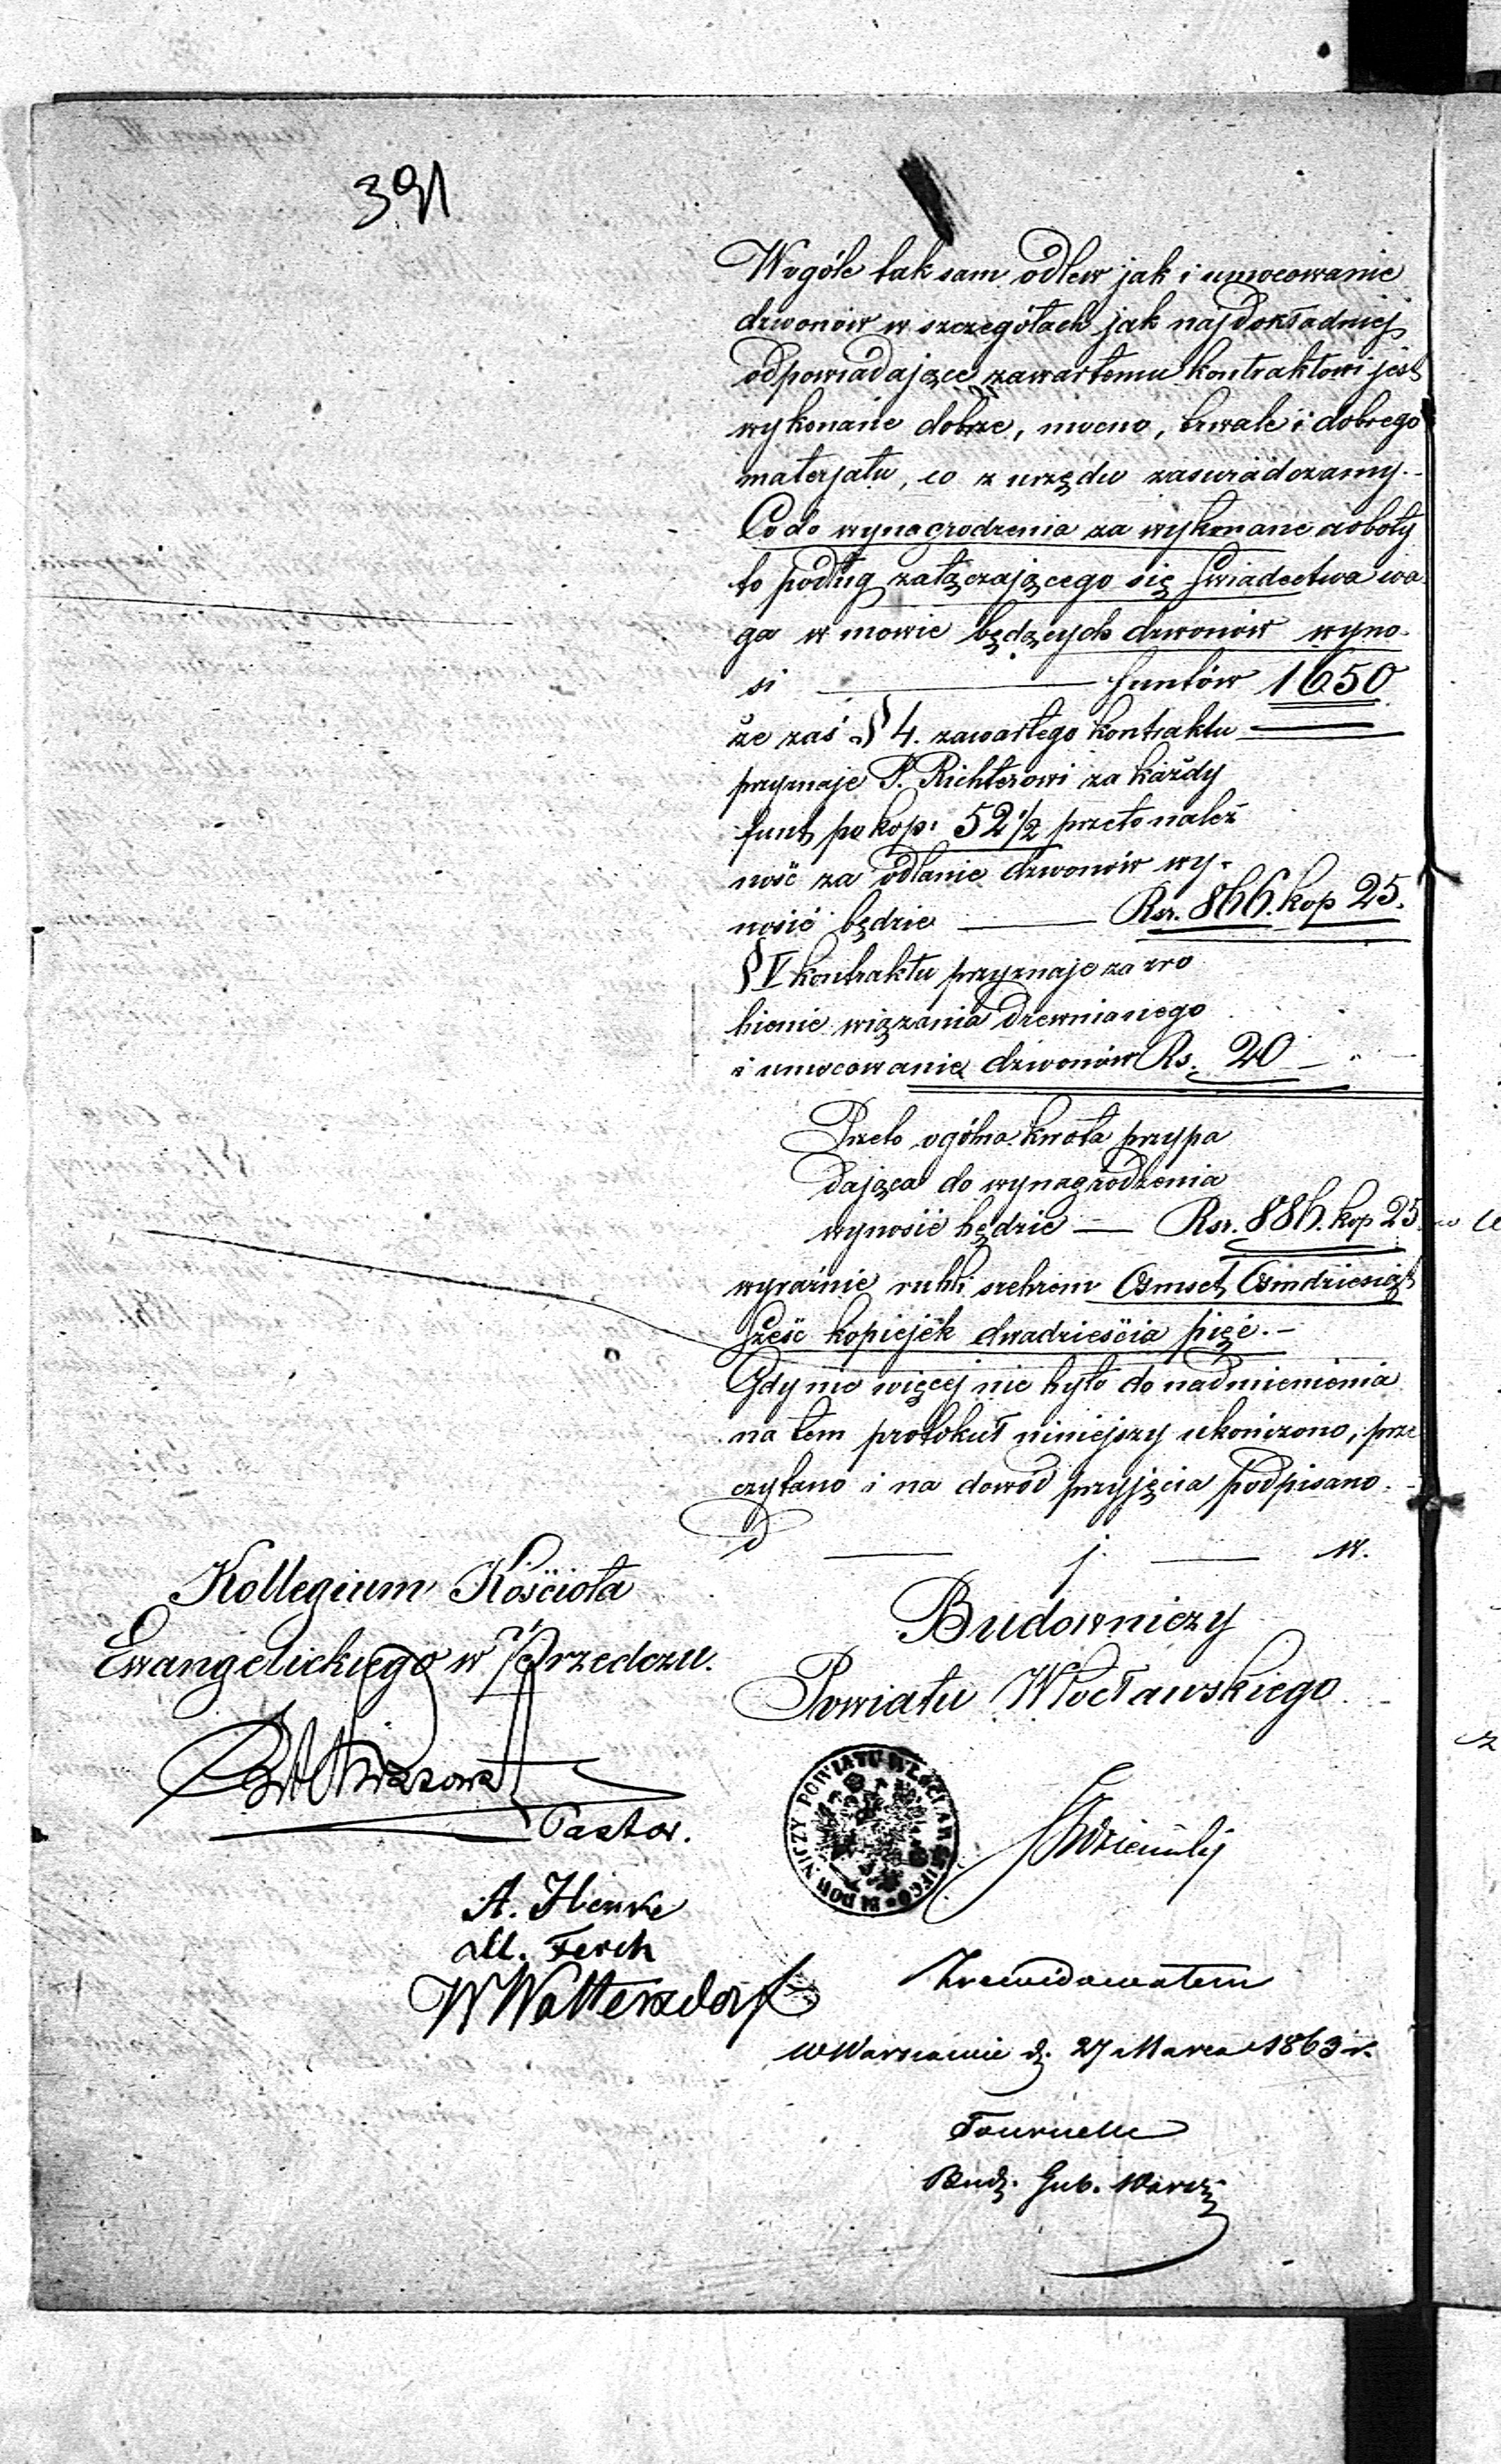 391
Wogóle tak sam odlew jak i umocowanie
dzwonów w szczegółach jak najdokładniej
odpowiadające zawartemu kontraktowi jest
wykonane dobrze, mocno, trwale i dobrego
materjału, co z urzędu zaświadczamy.-
Co do wynagrodzenia za wykonane roboty
to podług załączającego się świadectwa wa
ga w mowie będących dzwonów wyno-
si — funtów 1650
że zaś § 4. zawartego kontraktu
przyznaje P. Richterowi za każdy
funt po kop: 52 1/2 przeto należ
ność za odlanie dzwonów wy-
nosić będzie — Rsr. 866. kop 25.
§ V kontraktu przyznaje za zro
bienie wiązania drewnianego
i umocowanie dzwonów Rs. 20 —
Przeto ogólna kwota przypa
dająca do wynagrodzenia
wynosić będzie — Rsr. 886. kop 25
wyraźnie rubli srebrem Ośmset Ośmdziesiąt
sześć kopiejek dwadzieścia pięć.-
Gdy nic więcej nie było do nadmienienia
na tem protokuł niniejszy ukończono, prze
czytano i na dowód przyjęcia podpisano.-
d — j. — w.
Kollegium Kościoła
Ewangelickiego w Przedczu.
Pastor.
A. Henke
M. Ferch
W Woltersdorf
Budowniczy
Powiatu Włocławskiego
BUDOWNICZY POWIATU WŁOCŁAWSKIEGO
Zrewidowałem
w Warszawie d. 27 Marca 1863 r.
Tournelle
Bud. Gub. Warsz